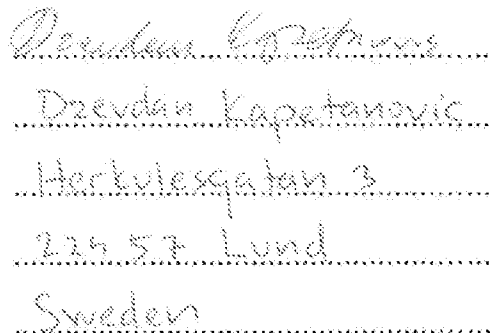 Dzevdan Kapetanovic
Dzevdan Kapetanovic
Herkulesgatan 3
224 57 Lund
Sweden